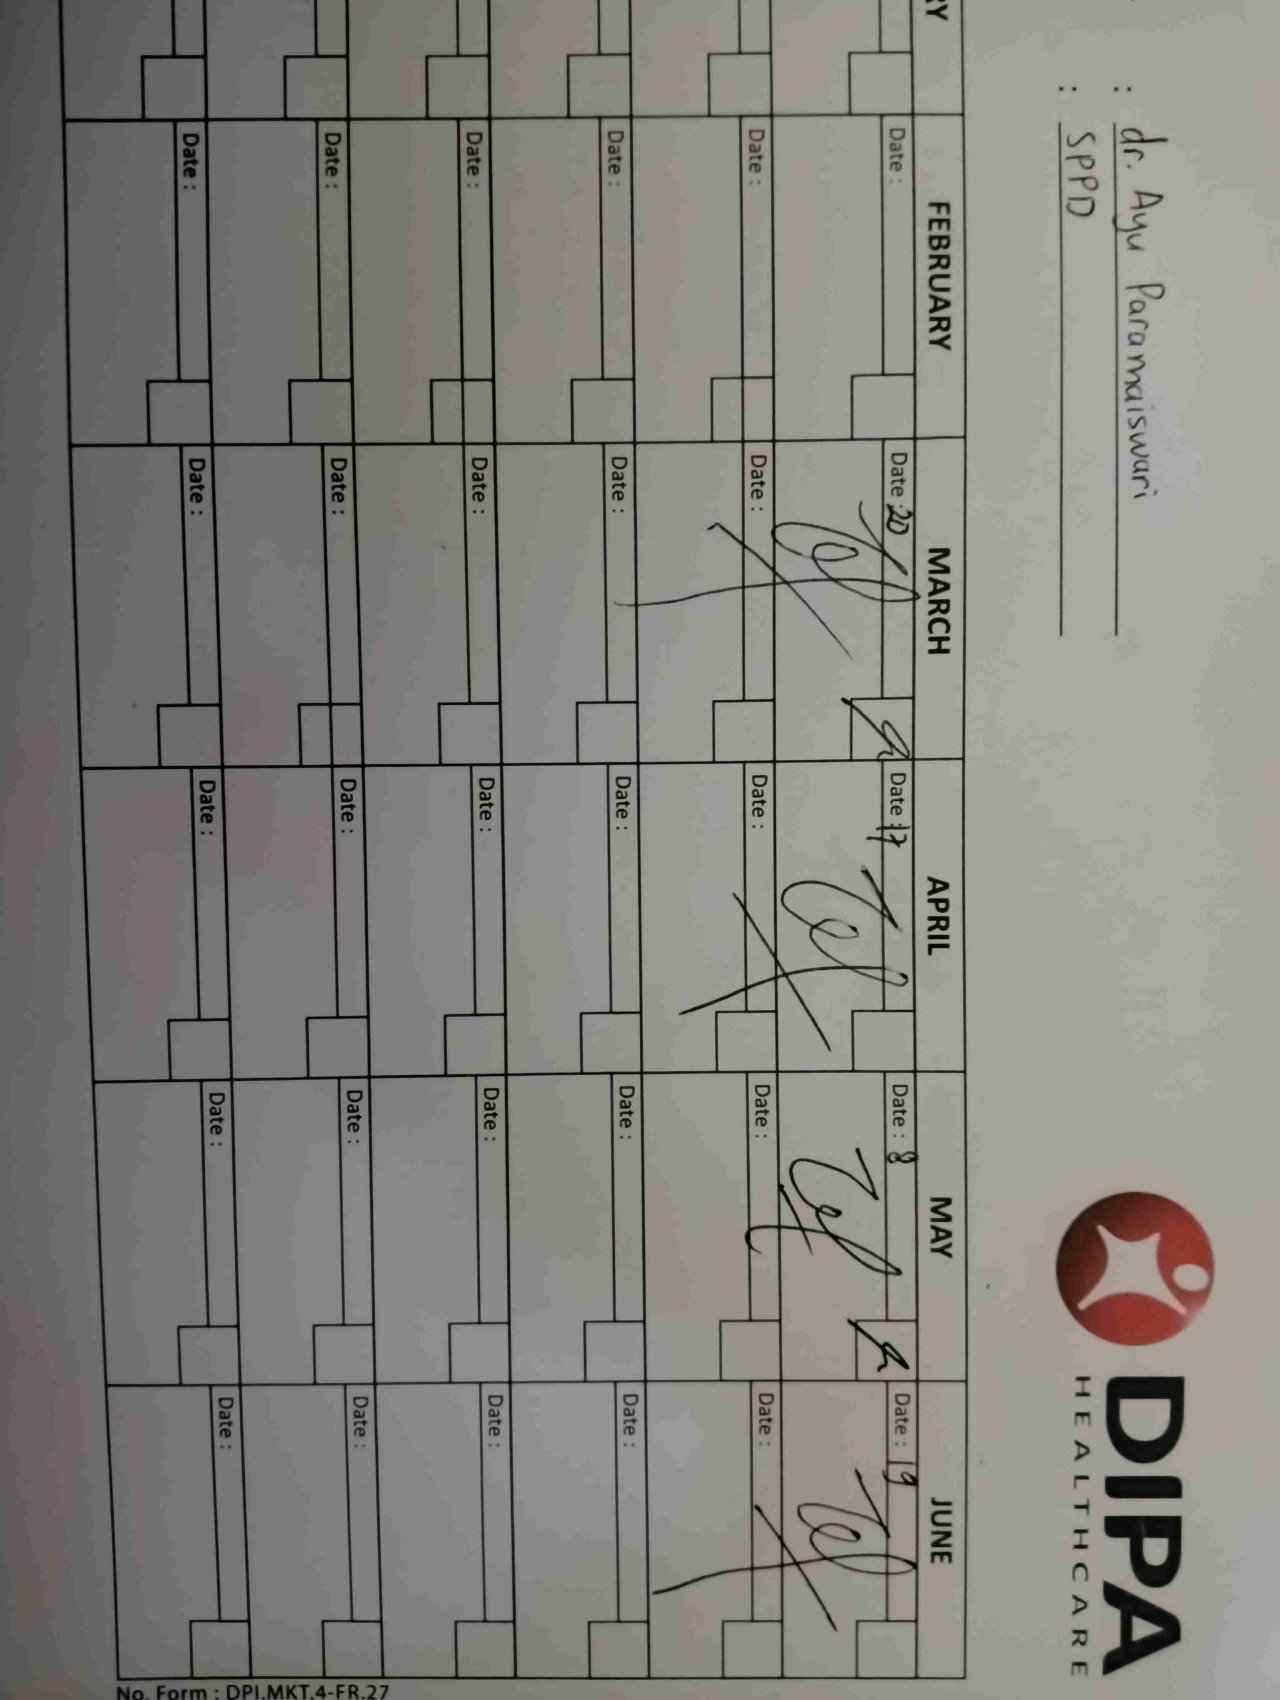 : dr. Ayu Paramaiswari
: SPPD
DIPA
HEALTHCARE
RY FEBRUARY MARCH APRIL MAY JUNE
Date : Date : 20 Date : 17 Date : 8 Date : 19
Date : Date : Date : Date : Date :
Date : Date : Date : Date : Date :
Date : Date : Date : Date : Date :
Date : Date : Date : Date : Date :
Date : Date : Date : Date : Date :
No. Form : DPI.MKT.4-FR.27